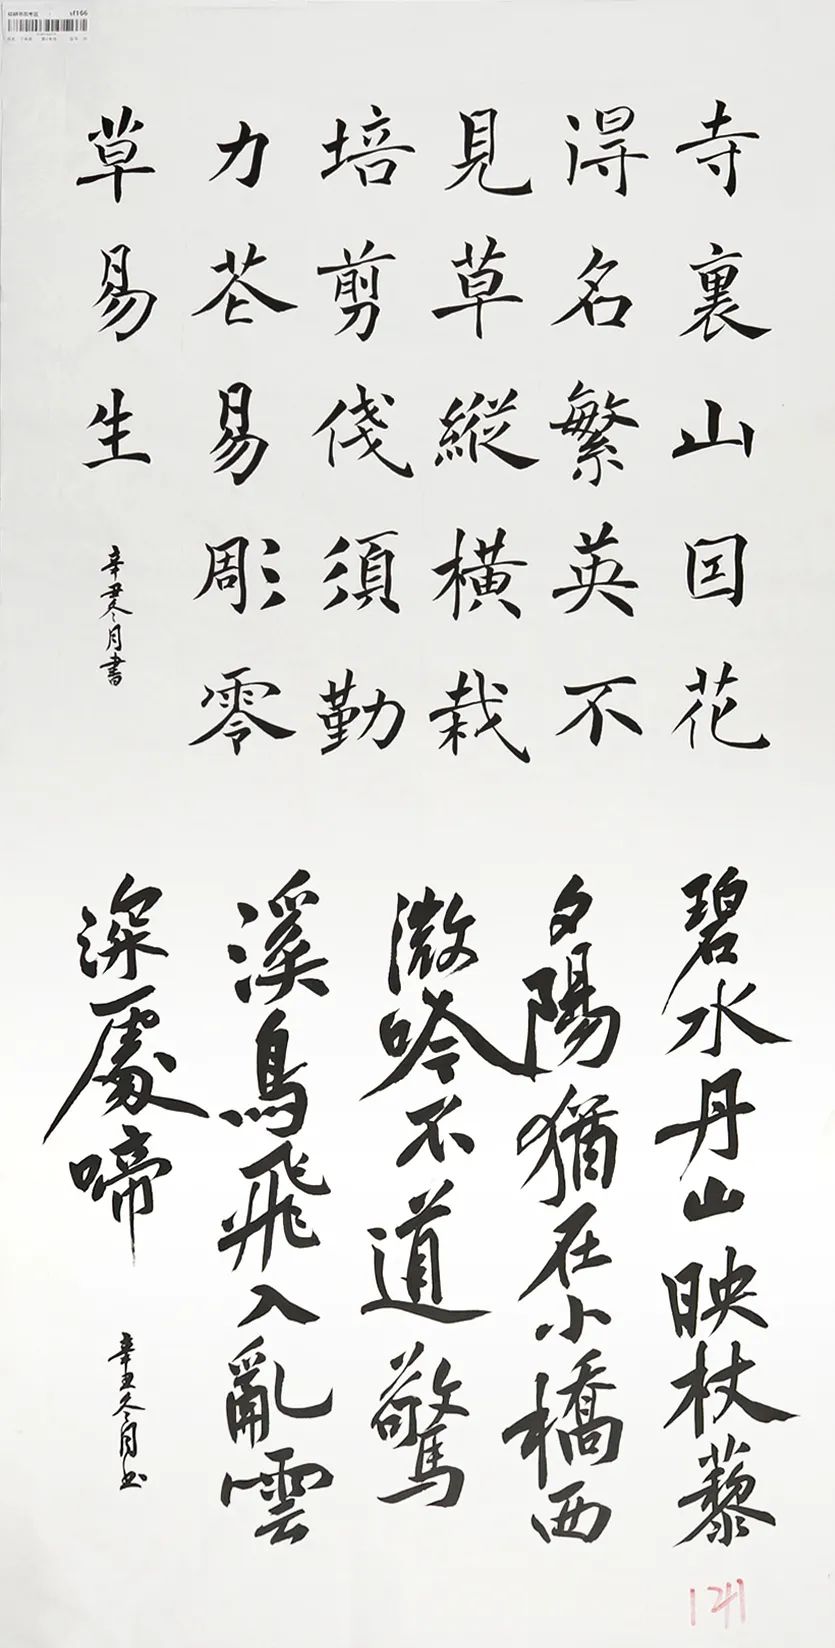 sf166
寺裏山囙花
淂名繁英不
見草縱橫栽
培剪俴須勤
力芲易彫零
草易生
辛丑冬月書
碧水丹山映杖藜
夕陽猶在小橋西
微吟不道驚
溪鳥飛入亂雲
深處啼
辛丑冬月书
121